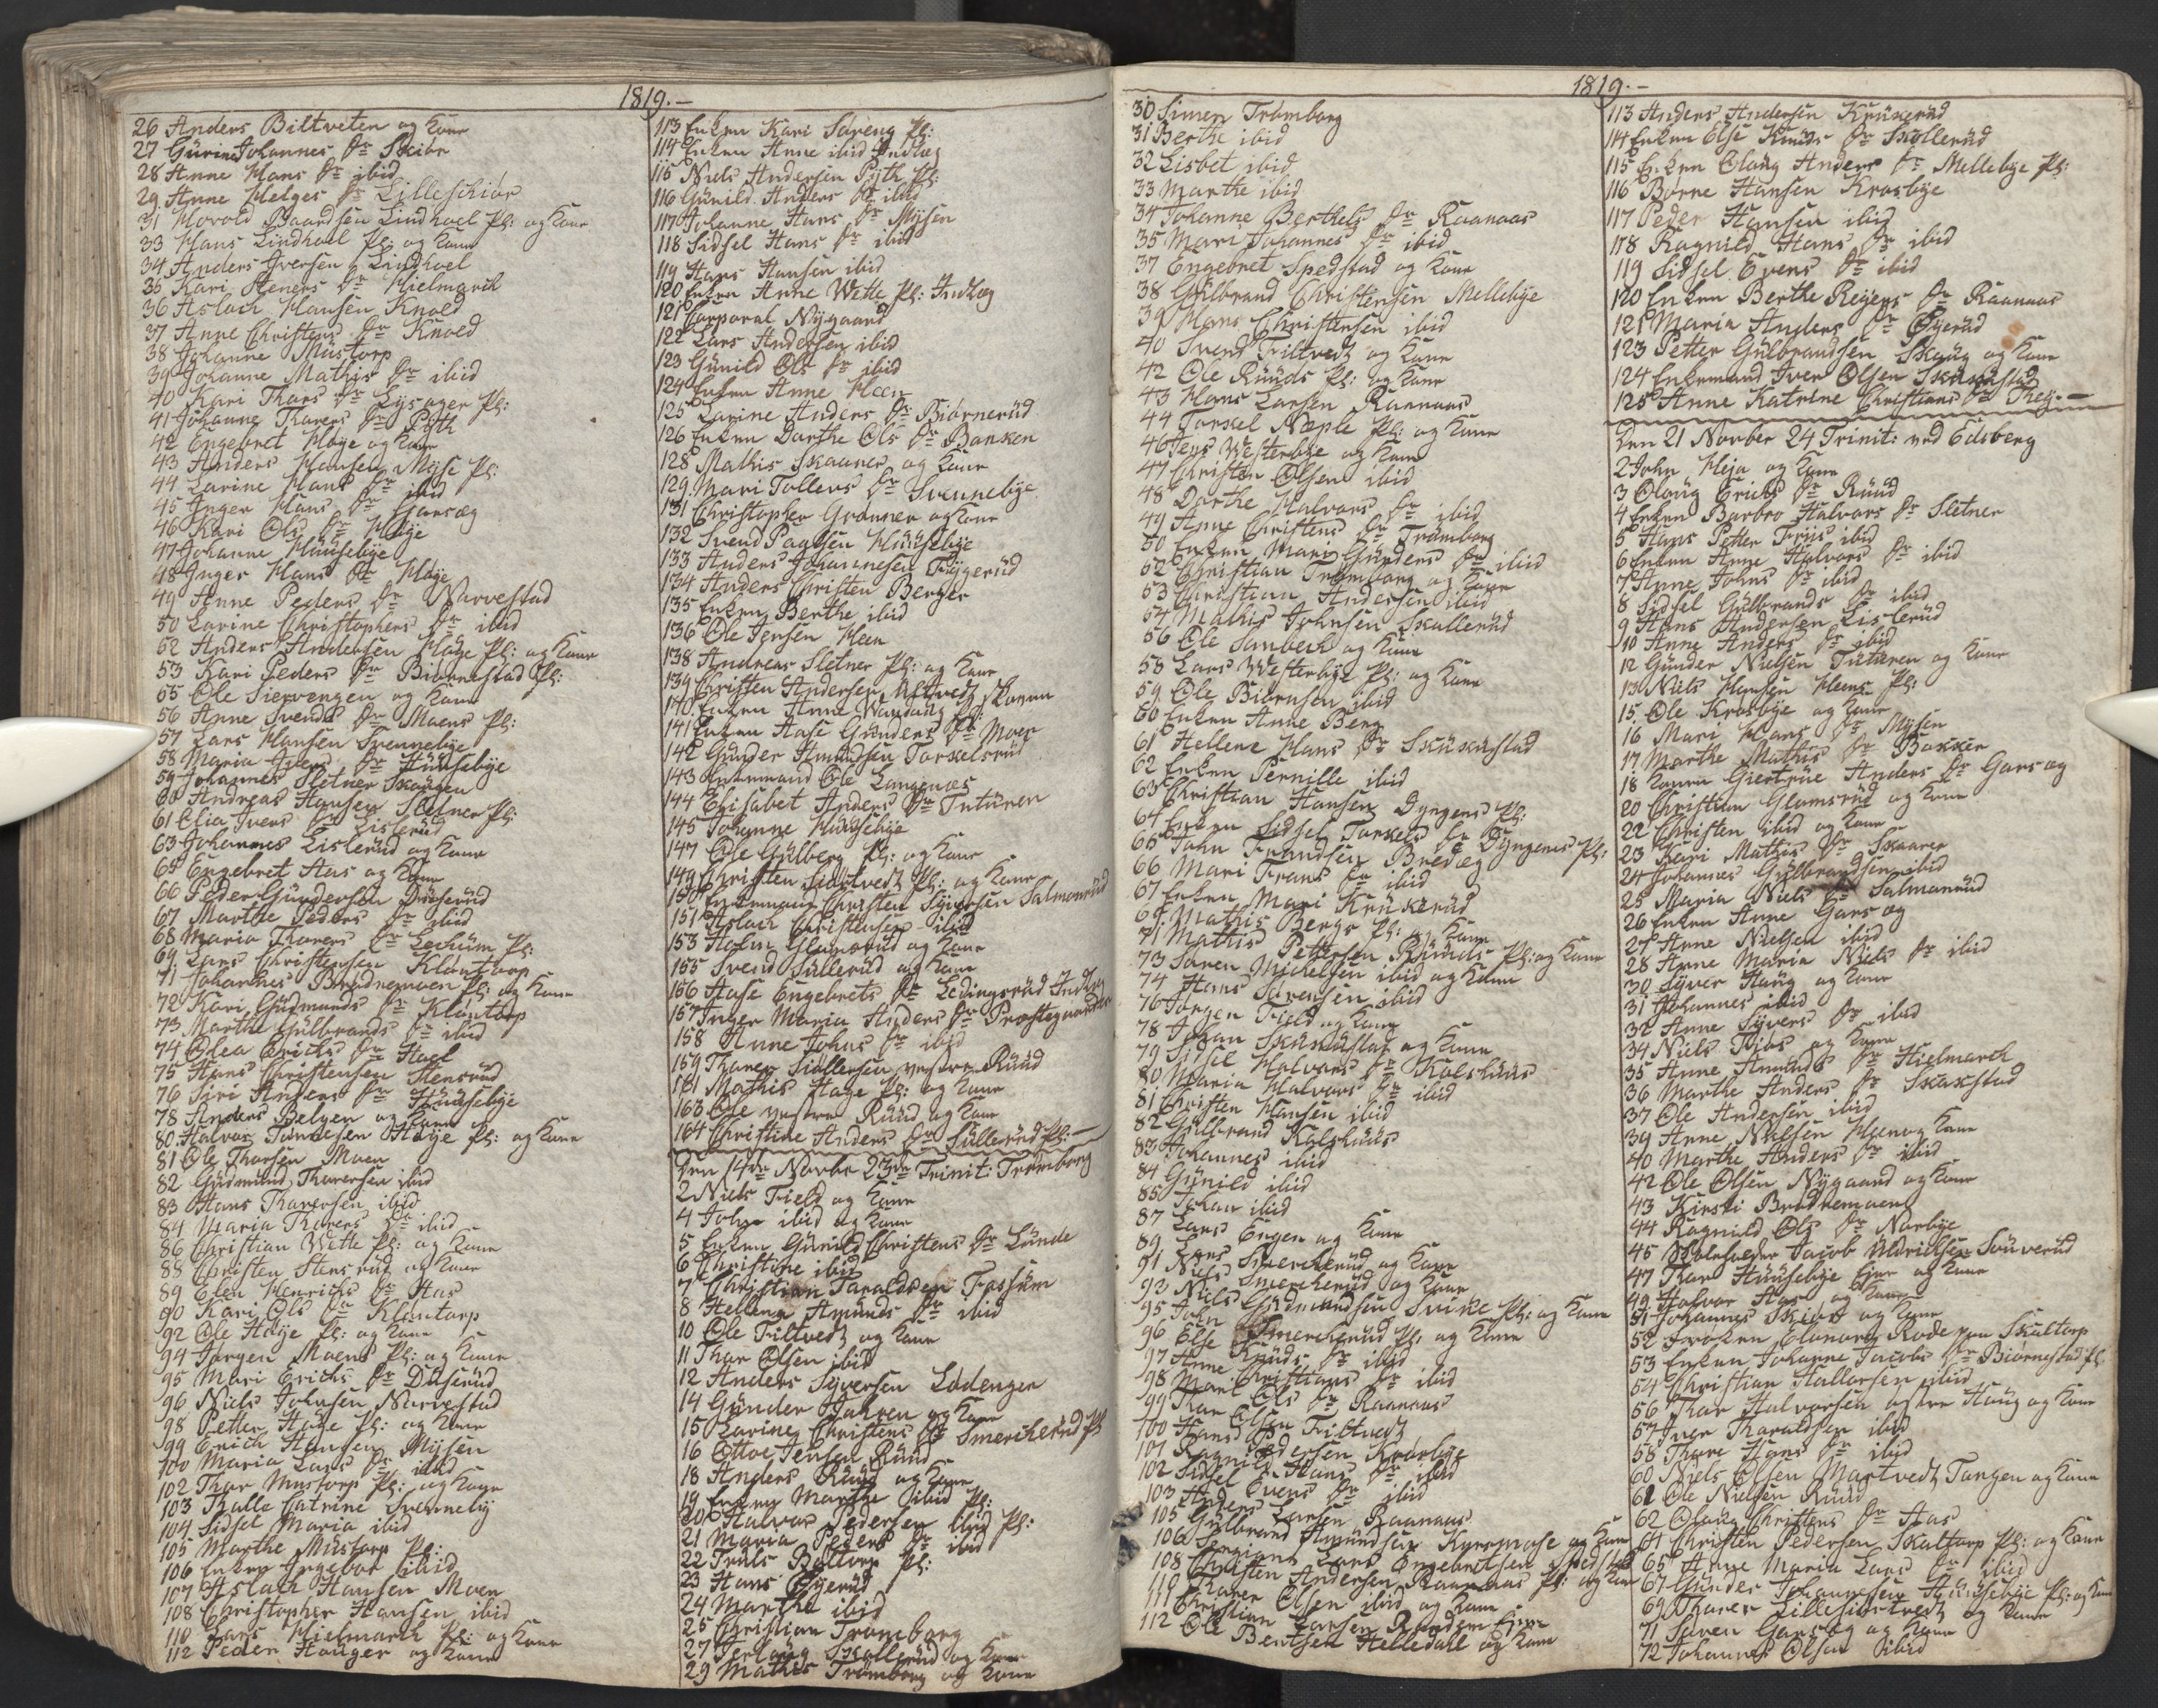 1819.-
26 Anders Biltveten og Kone
27 Gurine Johannes Dr Skiør
28 Anne Hans Dr ibid
29. Anne Helges Dr Lilleskiør
31 Hovold Baardsen Lindhoel Pl: og Kone
33 Hans Lindhoel Pl: og Kone
34 Anders Iversen Lindhoel
35 Kari Steners Dr Hielmarck
36 Aslach Hansen Knold
37 Anne Christens Dr Knold
38 Johanne Mustorp
39 Johanne Mathis Dr ibid
40 Kari Thors Dr Lysager Pl:
41 Johanne Thorers Dr
42 Engebret Høye og Kone
43 Anders Hansen Myse Pl:
44 Larine Hans Dr ibid
45 Inger Hans Dr Garsæg
46 Kari Ols Dr Høye
47 Johanne Huusebye
48 Inger Hans Dr Høye
49 Anne Peders Dr Narvestad
50 Lavine Christophers Dr ibid
52 Anders Andersen Høye Pl: og Kone
53 Kari Peders Dr Biørnestad Pl:
55 Ole Siervengen og Kone
56 Anne Svends Dr Moens Pl:
57 Lars Hansen Svennebye
58 Maria Ivers Dr Huusebye
59 Johannes Sletner Skougen
60 Andreas Hansen Sletner Pl:
61 Elia Ivers Dr Lislerud
63 Johannes Lislerud og Kone
65 Engebret Aas og Kone
66 Peder Gundersen Duserud
67 Marthe Peders Dr ibid
68 Maria Thorers Dr Lechum Pl:
69. Lars Christensen Kløntorp
71 Johannes Brødremoen Pl: og Kone
72 Kari Gudmunds Dr Kløntorp
73 Marthe Gulbrands Dr ibid
74 Olea Erichs Dr
75 Hans Christensen Stensrud
76 Siri Anders Dr Huusebye
78 Anders Belgen og Kone
80. Halvor Høye Pl: og Kone
81 Ole Thorsen Moen
82 Gudmund Thorersen ibid
83 Hans Thorersen ibid
84 Maria Thorers Dr ibid
86 Christian Wette Pl: og Kone
88 Christen Stensrud og Kone
89 Elen Henrichs Dr Aas
90 Kari Ols Dr Kløntorp
92 Ole Høye Pl: og Kone
94 Jørgen Moens Pl: og Kone
95 Mari Erichs Dr Duserud
96 Niels Johnsen Narvestad
98 Petter Høye Pl: og Kone
99 Erich Hansen Mysen
100 Maria Lars Dr ibid
102 Thor Mustorp Pl: og Kone
103 Thalle Catrine Svenneby
104 Sidsel Maria ibid
105 Marthe Mustorp Pl:
106 Enken Ingebor ibid
107 Aslach Hansen Moen
108 Christopher Hansen ibid
110 Lars Hielmarck Pl: og Kone
112 Peder Houger og Kone
113 Enken Kari Søreng Pl:
114 Enken Anne ibid Indlæg
115 Niels Andersen Pl:
116 Gunild Anders Dr ibid
117 Johanne Hans Dr Mysen
118 Sidsel Hans Dr ibid
119 Hans Hansen ibid
120 Enken Anne Wette Pl: Indlæg
121 Corporal Nygaard
122 Lars Andersen ibid
123 Gunild Ols Dr ibid
124 Enken Anne Heen
125 Larine Anders Dr Biørnerud
126 Enken Dorthe Ols Dr Banken
128 Mathis Skaaner og Kone
129. Mari Tollevs Dr Svennebye
131 Christopher Grønner og Kone
132 Svend Huusebye
133 Anders Johannesen Frygerud
134 Anders Christen Berger
135 Enken Berthe ibid
136 Ole Jensen Heen
138 Andreas Sletner Pl: og Kone
139 Christen Andersen
140 Enken Anne
141 Enken Aase Gunders Dr Moen
142 Gunder Torkelsrud
143 Enkemand Ole Langenæs
144 Elisabet Anders Dr Tuturen
145 Johanne Huusebye
147 Ole Gulberg Pl: og Kone
149 Christen Pl: og Kone
150 Enkemand Christen Syversen Salmonrud
151 Aslach Christensen ibid
153 Holm Glomsrud og Kone
155 Svend Sullerud og Kone
156 Aase Engebrets Dr Ledingsrud Indlæg
157 Inger Maria Anders Dr Præstegaarden
158 Anne Johns Dr ibid
159 Thorer vestre Ruud
161 Mathis Høye Pl: og Kone
163 Ole vestre Ruud og Kone
164 Christine Anders Dr Sullerud Pl:
Den 14de Novbr 23de Trinit: Trømborg
2 Niels Field og Kone
4 John ibid og Kone
5 Enken Gunild Christens Dr Lunde
6 Christine ibid
7 Christian Taraldsen Fossum
8 Hellena Amunds Dr ibid
10 Ole Tiltvedt og Kone
11 Thor Olsen ibid
12 Anders Syversen Lødengen
14 Gunder og Kone
15 Karine Christens Dr Smerckerud Pl
16 Ottoe Jensen Ruud
18 Anders Ruud og Kone
19 Enken Marthe ibid Pl:
20 Halvor Pedersen ibid Pl:
21 Maria Peders Dr ibid
22 Truls Bøltorp Pl:
23 Hans Øyerud
24 Marthe ibid
25 Christian Trømborg
27 Skollerud og Kone
29 Mathis Trømborg og Kone
1819.-
30 Simen Trømborg
31 Berthe ibid
32 Lisbet ibid
33 Marthe ibid
34 Johanne Berthels Dr Raanaas
35 Mari Johannes Dr ibid
37 Engebret Spedstad og Kone
38 Gulbrand Christensen Mellebye
39 Hans Christensen ibid
40 Svend Tiltvedt og Kone
42 Ole Ruuds Pl: og Kone
43 Hans Larsen Raanaas
44 Torkel Næple Pl: og Kone
46 Jens Westerbye og Kone
47 Christen Olsen ibid
48 Dorthe Halvors Dr ibid
49 Anne Christens Dr Trømborg
50 Enken Mari Gunders Dr ibid
52 Christian Trømborg og Kone
53 Christian Andersen ibid
54 Mathis Johnsen Skallerud
56 Ole Sambech og Kone
58 Lars Westerbye Pl: og Kone
59 Ole Biørnsen ibid
60 Enken Anne Berg
61 Hellene Hans Dr Skukustad
62 Enken Pernille ibid
63 Christian Hansen Dyngens Pl:
64 Enken Sidsel Torkels Dr Dyngens Pl:
65 John Frandsen Bredæg
66 Mari Frans Dr ibid
67 Enken Mari Krukerud
69. Mathis Bergs Pl: og Kone
71 Mathis Pettersen Ruuds Pl: og Kone
73 Søren Michelsen ibid og Kone
74 Hans Sørensen ibid
76 Jørgen Field og Kone
78 Johan Skukustad og Kone
79 Sidsel Halvors Dr Kolshuus
80 Maria Halvors Dr ibid
81 Christen Hansen ibid
82 Gulbrand Kolshuus
83 Johannes ibid
84 Gunild ibid
85 Johan ibid
87 Lars Engen og Kone
89 Lars Smerckerud og Kone
91 Niels Smerckerud og Kone
93 Niels Gudmundsen Svike Pl: og Kone
95 John Smerckerud Pl: og Kone
96 Else Knuds Dr ibid
97 Anne Christians Dr ibid
98 Mari Ols Dr Raanaas
99 Thor Olsen Tiltvedt
100 Hans Pedersen Krosbye
101 Ragnild Hans Dr ibid
102 Sidsel Evens Dr ibid
103 Anders Larsen Raanaas
105 Gulbrand Amundsen og Kone
106 Sergiant Lars Engebretsen Spedstad
108 Christen Andersen Raanaas Pl: og Kone
110 Thorer Olsen ibid og Kone
Christian Larsen
112 Ole Bentsen Helledahl og Kone
113 Anders Andersen Krukerud
114 Enken Else Knuds Dr Skollerud
115 Enken Oloug Anders Dr Mellebye Pl:
116 Børne Hansen Krosbye
117 Peder Hansen ibid
118 Ragnild Hans Dr ibid
119 Sidsel Evens Dr ibid
120 Enken Berthe Reyers Dr Raanaas
121 Maria Anders Dr Øyerud
123 Petter Gulbrandsen Skoug og Kone
124 Enkemand Iver Olsen Skukustad
125 Anne Katrine Christians Dr
Den 21 Novber 24 Trinit: ved Edsberg
2 John Heja og Kone
3 Oloug Erichs Dr Ruud
4 Enken Barbro Halvors Dr Sletner
5 Hans Petter Friis ibid
6 Enken Anne Halvors Dr ibid
7 Anne Johns Dr ibid
8 Sidsel Gulbrands Dr ibid
9 Hans Andersen Lislerud
10 Anne Anders Dr ibid
12 Gunder Nielsen Tuturen og Kone
13 Niels Hansen Heens Pl:
15. Ole Krosbye og Kone
16 Mari Hans Dr Mysen
17 Marthe Mathis Dr Bakken
18 Konen Giertrue Anders Dr Garsæg
20 Christian Glomsrud og Kone
22 Christen ibid og Kone
23 Kari Mathis Dr Skaaner
24 Johannes Gulbrandsen ibid
25 Maria Niels Dr Salmonrud
26 Enken Anne Garsæg
27 Anne Nielsen ibid
28 Anne Maria Niels Dr ibid
30 Syver Houg og Kone
31 Johannes ibid
32 Anne Syvers Dr ibid
34 Niels Bjos og Kone
35 Anne Amunds Dr Hielmarck
36 Marthe Anders Dr Skakstad
37 Ole Andersen ibid
39 Anne Nielsen Heen og Kone
40 Marthe Anders Dr ibid
42 Ole Olsen Nygaard og Kone
43 Kirsti Brødremoen
44 Ragnild Ols Dr Norbye
45 Skoleholder Jacob Uldrichsen Sauverud
47 Thor Huusebye Eier og Kone
49. Halvor Aas og Kone
51 Johannes Skiør og Kone
52 Frøken Elenora Rode von Skaltorp
53 Enken Johanne Jacobs Dr Biørnestad Pl
54 Christian Hallorsen ibid
56 Thor Halvorsen østre Houg og Kone
57 Iver Tharaldsen ibid
58 Thore Hans Dr ibid
60 Niels Olsen Martvedt Tangen og Kone
61 Ole Nielsen Ruud
62 Oloug Christens Dr Aas
64 Christen Pedersen Skaltorp Pl: og Kone
65 Anne Maria Lars Dr ibid
67 Gunder Johannesen Huusebye Pl: og Kone
69 Thorer og Kone
71 Søren Garsæg og Kone
72 Johannes Olsen ibid